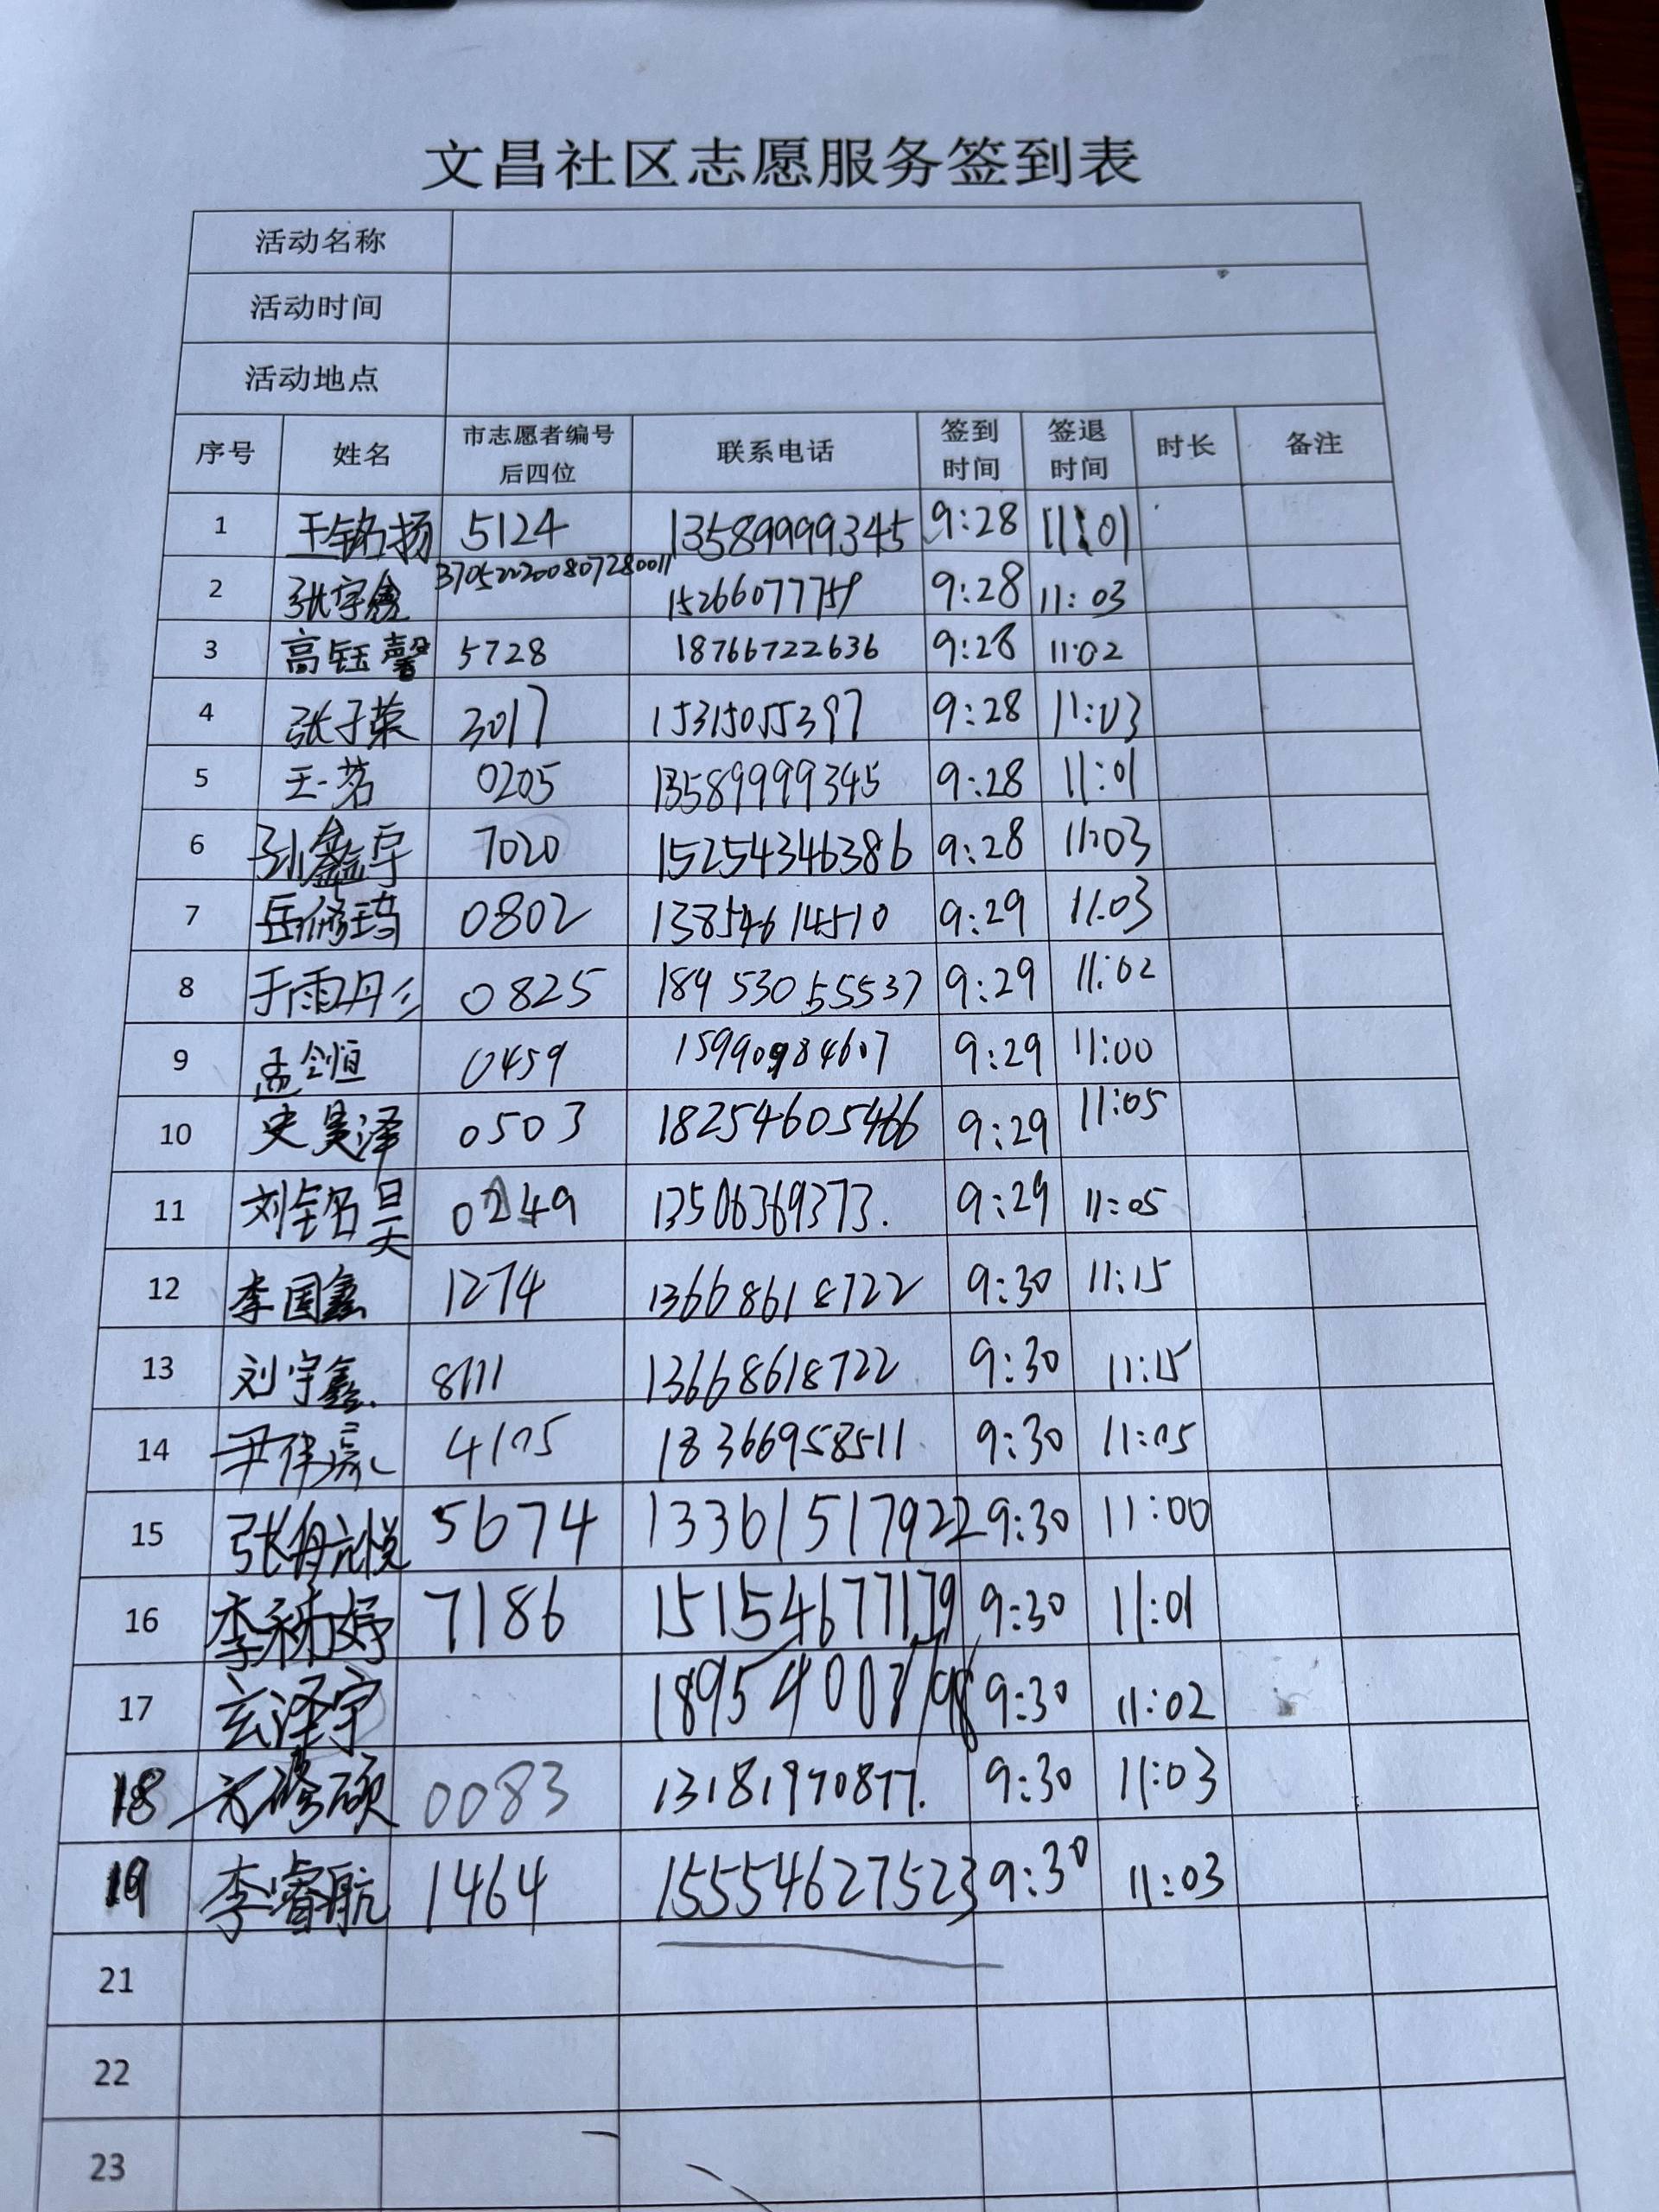 文昌社区志愿服务签到表
活动名称
活动时间
活动地点
序号 姓名 市志愿者编号后四位 联系电话 签到时间 签退时间 时长 备注
1 王铭扬 5124 13589999345 9:28 11:01
2 张宇鑫 370522200807280011 15266077759 9:28 11:03
3 高钰馨 5728 18766722636 9:28 11:02
4 张子荣 3017 15315055397 9:28 11:03
5 王一茗 0205 13589999345 9:28 11:01
6 孙鑫宇 7020 15254346386 9:28 11:03
7 岳修瑀 0802 13854614510 9:29 11:03
8 于雨彤 0825 189 53055537 9:29 11:02
9 孟令恒 0459 15990984607 9:29 11:00
10 史昊泽 0503 18254605466 9:29 11:05
11 刘铭昊 0249 13506369373. 9:29 11:05
12 李国鑫 1274 13668618722 9:30 11:15
13 刘宇鑫 8111 13668618722 9:30 11:15
14 尹伟豪 4105 18366958511 9:30 11:05
15 张航悦 5674 13361517922 9:30 11:00
16 李秝妤 7186 15154677179 9:30 11:01
17 玄泽宇 9:30 11:02
18 0083 13181970877. 9:30 11:03
19 李睿航 1464 15554627523 9:30 11:03
21
22
23